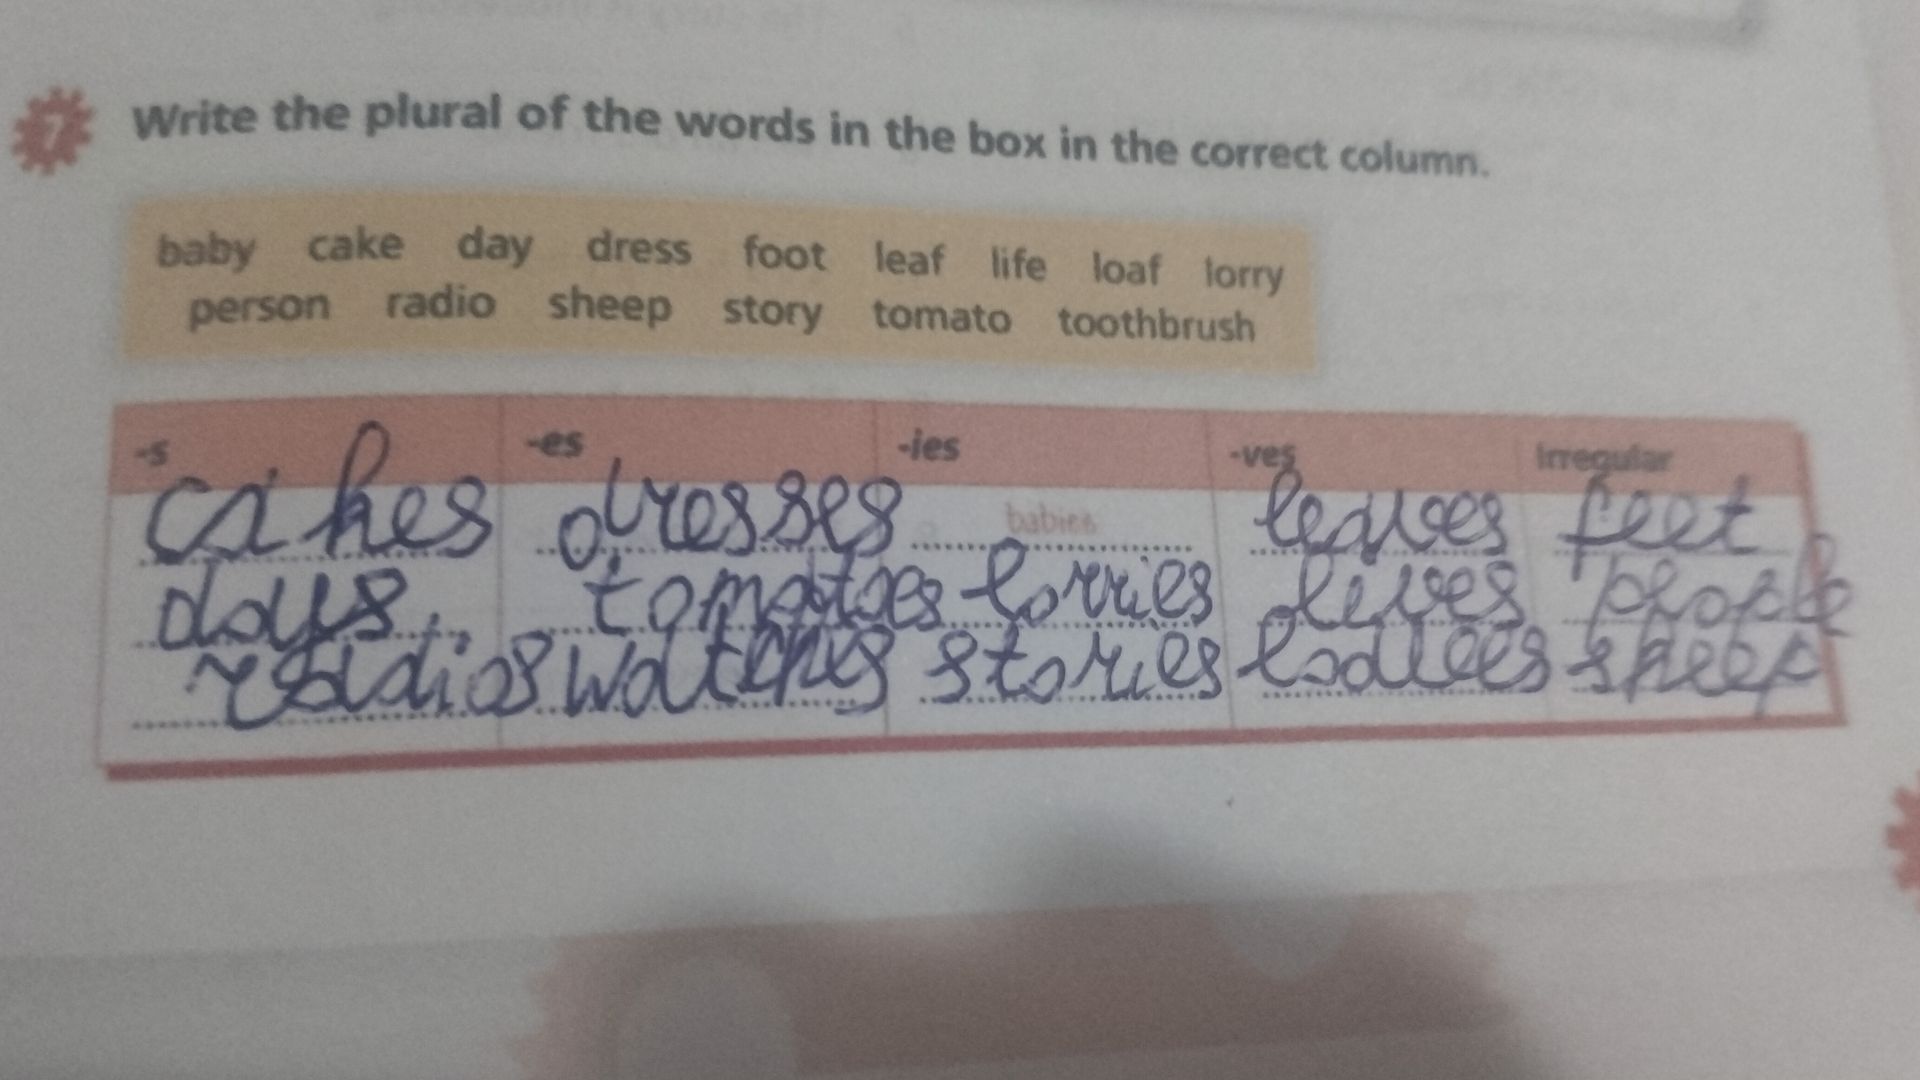 7 Write the plural of the words in the box in the correct column.
baby cake day dress foot leaf life loaf lorry
person radio sheep story tomato toothbrush
-s -es -ies -ves irregular
cakes dresses babies leaves feet
days tomatoes lorries lives people
radios watches stories sheep